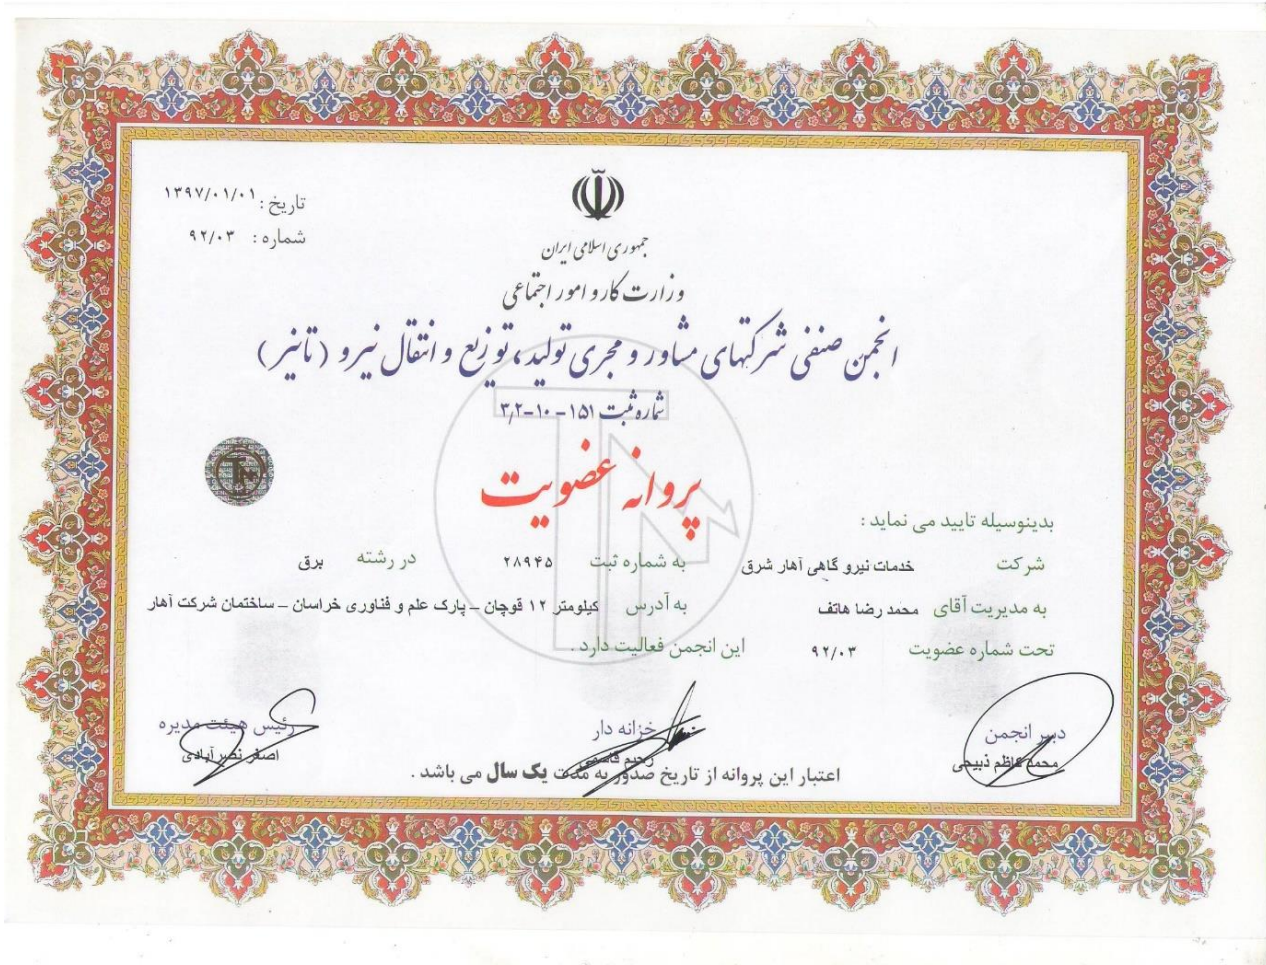 تاریخ : ۱۳۹۷/۰۱/۰۱
شماره : ۹۲/۰۳
جمهوری اسلامی ایران
وزارت کار و امور اجتماعی
انجمن صنفی شرکتهای مشاور و مجری تولید، توزیع و انتقال نیرو (تانیر)
شماره ثبت ۱۵۱-۱۰-۳٫۲
پروانه عضویت
بدینوسیله تایید می نماید :
شرکت خدمات نیرو گاهی آهار شرق به شماره ثبت ۲۸۹۴۵ در رشته برق
به مدیریت آقای محمد رضا هاتف به آدرس کیلومتر ۱۲ قوچان – پارک علم و فناوری خراسان – ساختمان شرکت آهار
تحت شماره عضویت ۹۲/۰۳ این انجمن فعالیت دارد .
دبیر انجمن
محمد کاظم ذبیحی
خزانه دار
رحیم قاسمی
رئیس هیئت مدیره
اصغر نصرآبادی
اعتبار این پروانه از تاریخ صدور به مدت یک سال می باشد .